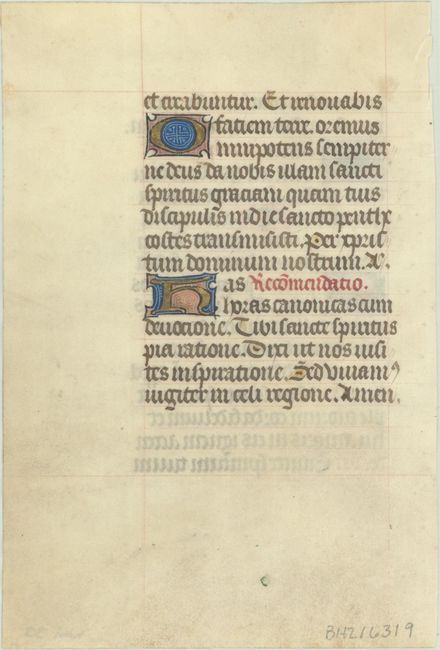 et creabuntur. Et renouabis
faciem terre. oremus
Omnipotens sempiter
ne deus da nobis illam sancti
spiritus graciam quam tuis
discipulis in die sancto penthe
costes transmisisti. Per xpris
tum dominum nostrum. A.
Has Recōmendatio.
horas canonicas cum
deuocione. Tibi sancte spiritus
pia ratione. Dixi ut nos uisi
tes inspiratione. Sed uiuam
iugiter in celi regione. Amen.
BH216319